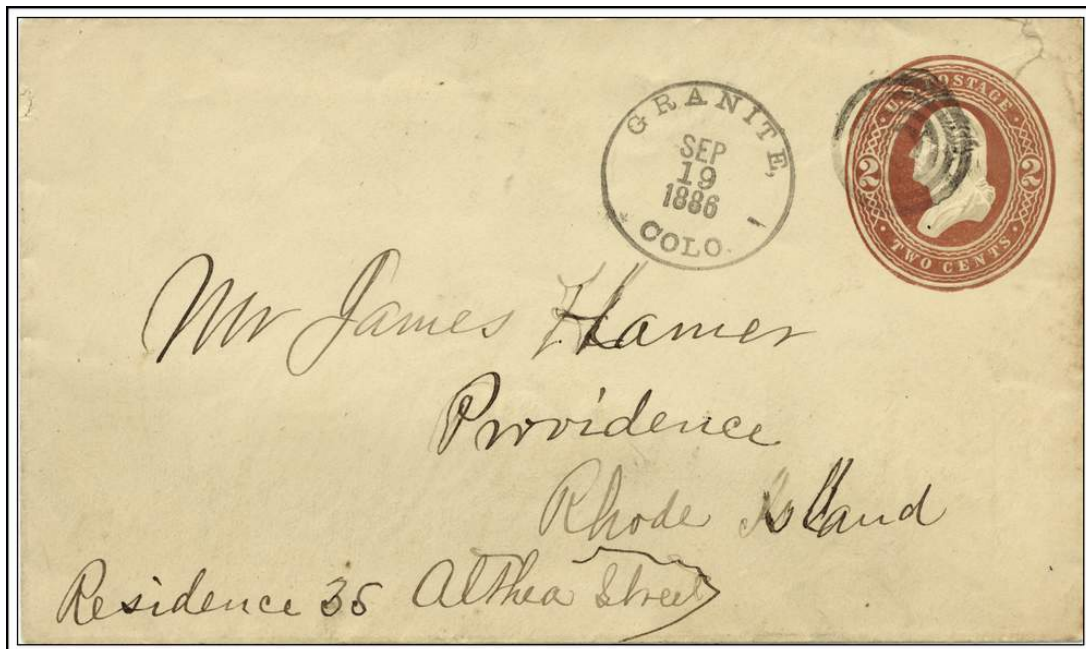 GRANITE,
SEP
19
1886
COLO.
U.S. POSTAGE
2 2
TWO CENTS
Mr James Hamer
Providence
Rhode Island
Residence 36 Althea Street